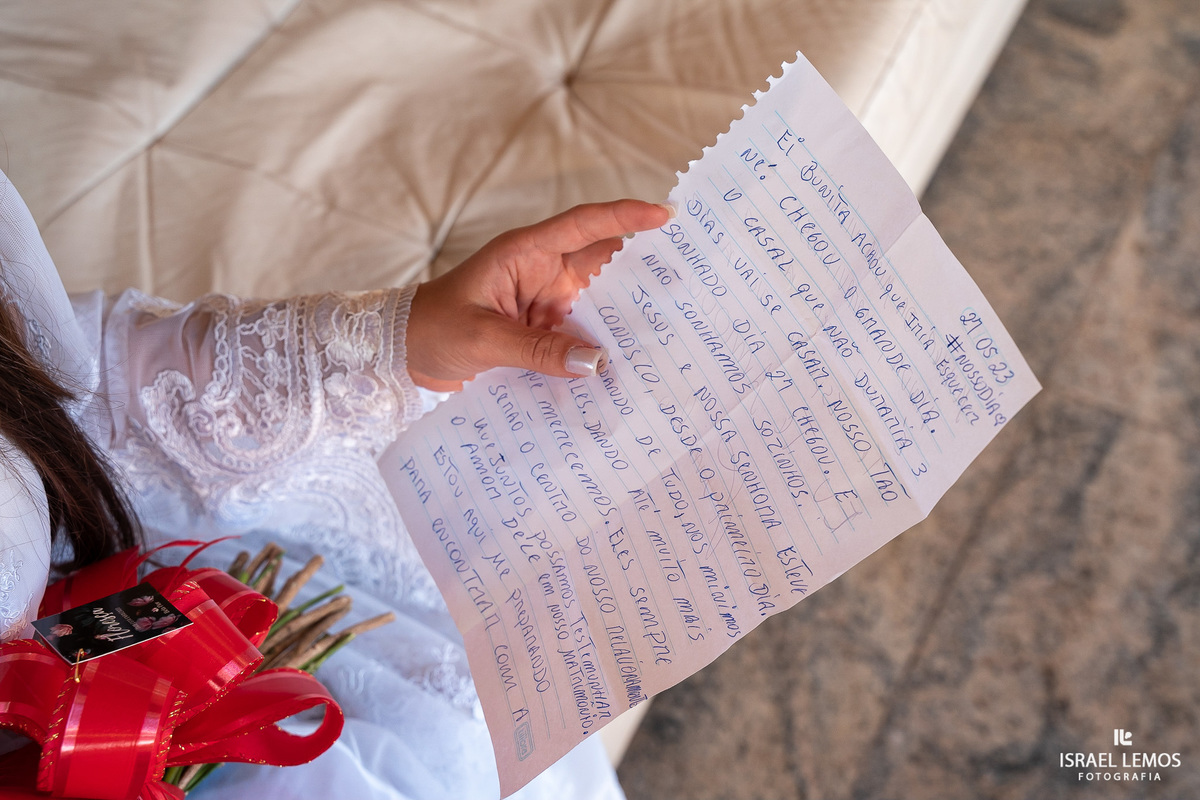 27 05 23
#NOSSODIA
EI BUNITA ACHOU QUE IRIA ESQUECER
NÉ! CHEGOU O GRANDE DIA.
O CASAL QUE NÃO DURARIA 3
DIAS VAI SE CASAR. NOSSO TÃO
SONHADO DIA 27 CHEGOU. E
NÃO SONHAMOS SOZINHOS.
JESUS E NOSSA SENHORA ESTEVE
CONOSCO, DESDE O PRIMEIRO DIA,
DE TUDO, NOS
DANDO ATÉ MUITO MAIS
QUE MERECEMOS. ELES SEMPRE
SERÃO O CENTRO DO NOSSO RELACIONAMENTO
QUE JUNTOS POSSAMOS TESTEMUNHAR
O AMOR DELE EM NOSSO MATRIMÔNIO.
ESTOU AQUI ME PREPARANDO
PARA ENCONTRAR COM A
ISRAEL LEMOS
FOTOGRAFIA